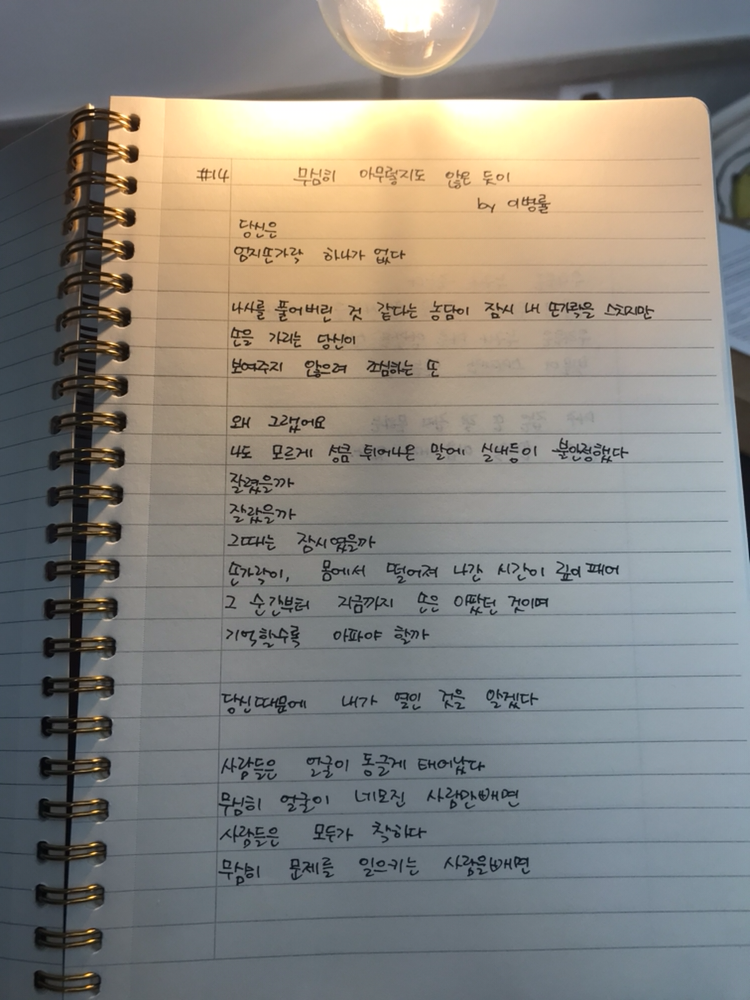 #14 무심히 아무렇지도 않은 듯이
by 이병률
당신은
엄지손가락 하나가 없다
나사를 풀어버린 것 같다는 농담이 잠시 내 손가락을 스치지만
손을 가리는 당신이
보여주지 않으려 조심하는 손
왜 그랬어요
나도 모르게 성큼 튀어나온 말에 실내등이 불안정했다
잘렸을까
잘랐을까
그때는 잠시였을까
손가락이, 몸에서 떨어져 나간 시간이 깊이 패어
그 순간부터 지금까지 손은 아팠던 것이며
기억할수록 아파야 할까
당신때문에 내가 열인 것을 알겠다
사람들은 얼굴이 둥글게 태어났다
무심히 얼굴이 네모진 사람만빼면
사람들은 모두가 착하다
무심히 문제를 일으키는 사람을빼면